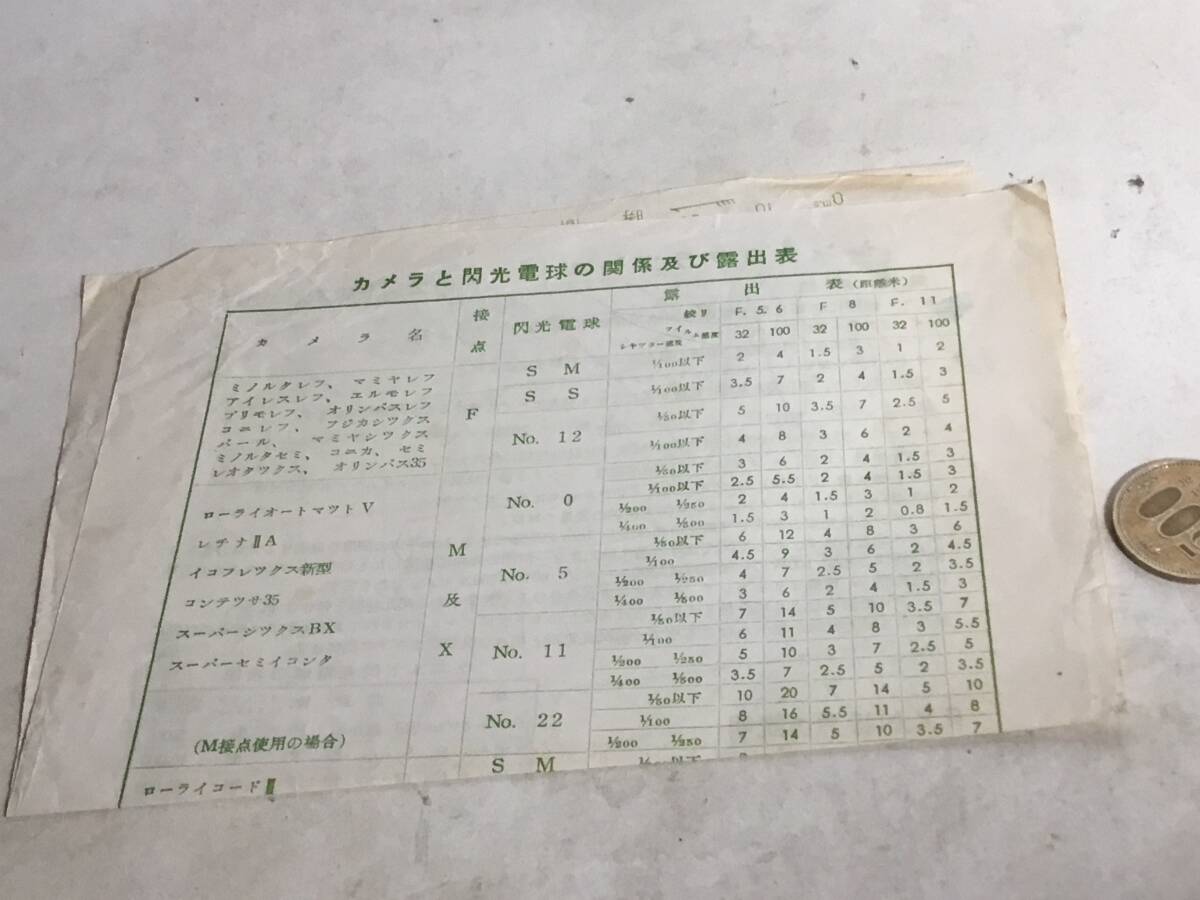 カメラと閃光電球の関係及び露出表
カメラ名 接点 閃光電球 露出表(距離米)
絞り F. 5. 6 F 8 F. 11
フイルム感度 32 100 32 100 32 100
シヤツター速度
ミノルタレフ、マミヤレフ
アイレスレフ、エルモレフ
プリモレフ、オリンパスレフ
コニレフ、フジカシツクス
パール、マミヤシツクス
ミノルタセミ、コニカ、セミ
レオタツクス、オリンパス35
F
S M 1/100以下 2 4 1.5 3 1 2
S S 1/100以下 3.5 7 2 4 1.5 3
No. 12 1/50以下 5 10 3.5 7 2.5 5
1/100以下 4 8 3 6 2 4
ローライオートマツトV
レチナⅡA
イコフレツクス新型
コンテツサ35
スーパーシツクスBX
スーパーセミイコンタ
(M接点使用の場合)
M及X
No. 0 1/50以下 3 6 2 4 1.5 3
1/100以下 2.5 5.5 2 4 1.5 3
1/200 1/250 2 4 1.5 3 1 2
1/400 1/500 1.5 3 1 2 0.8 1.5
No. 5 1/50以下 6 12 4 8 3 6
1/100 4.5 9 3 6 2 4.5
1/200 1/250 4 7 2.5 5 2 3.5
1/400 1/500 3 6 2 4 1.5 3
No. 11 1/50以下 7 14 5 10 3.5 7
1/100 6 11 4 8 3 5.5
1/200 1/250 5 10 3 7 2.5 5
1/400 1/500 3.5 7 2.5 5 2 3.5
No. 22 1/50以下 10 20 7 14 5 10
1/100 8 16 5.5 11 4 8
1/200 1/250 7 14 5 10 3.5 7
ローライコードⅡ S M